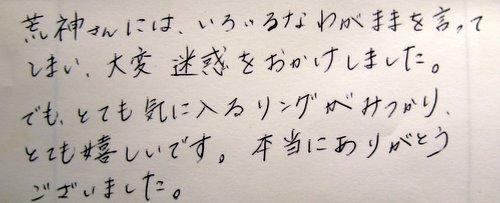 荒神さんには、いろいろなわがままを言って
しまい、大変 迷惑をおかけしました。
でも、とても気に入るリングがみつかり、
とても嬉しいです。本当にありがとう
ございました。